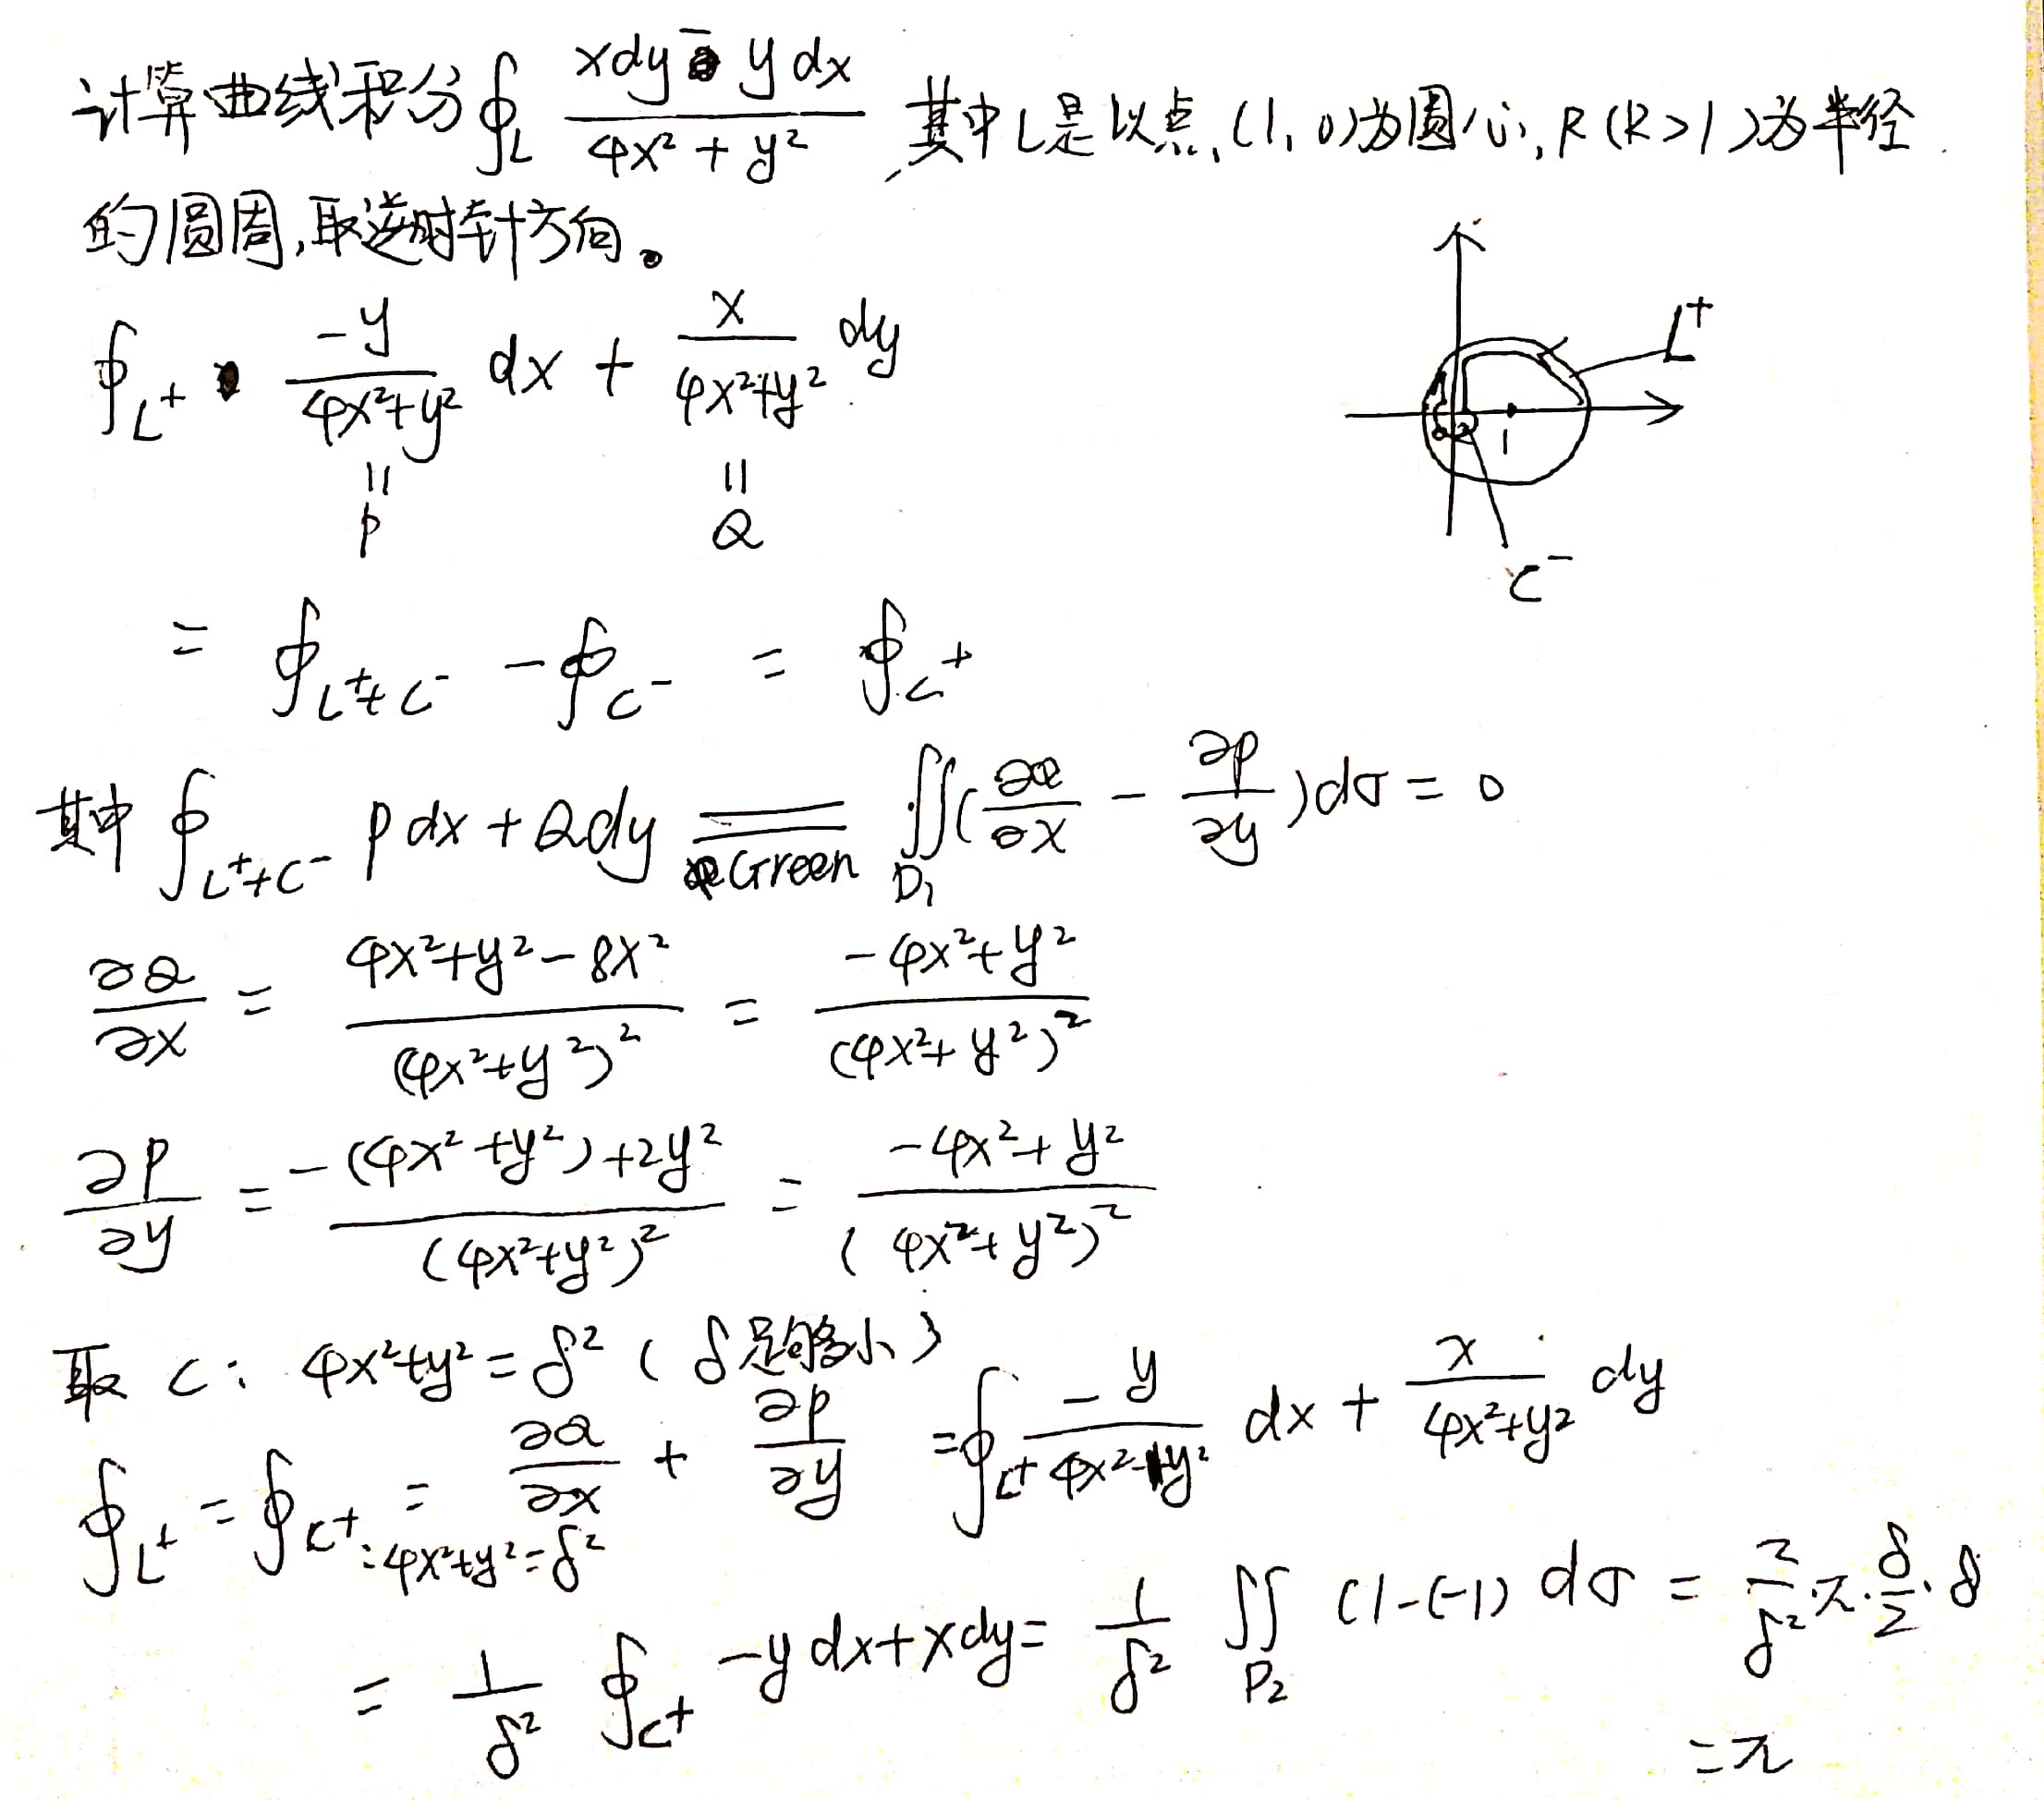 计算曲线积分∮_L (xdy - ydx)/(4x²+y²) 其中L是以点(1,0)为圆心,R(R>1)为半径
的圆周,取逆时针方向。
∮_{L⁺} (-y)/(4x²+y²) dx + x/(4x²+y²) dy
L⁺
1
|| ||
P Q
C⁻
= ∮_{L⁺+C⁻} - ∮_{C⁻} = ∮_{C⁺}
其中 ∮_{L⁺+C⁻} Pdx+Qdy ==Green== ∬_{D₁}(∂Q/∂x - ∂P/∂y)dσ = 0
∂Q/∂x = (4x²+y²-8x²)/(4x²+y²)² = (-4x²+y²)/(4x²+y²)²
∂P/∂y = (-(4x²+y²)+2y²)/(4x²+y²)² = (-4x²+y²)/(4x²+y²)²
取 C: 4x²+y²=δ² (δ足够小)
∮_{L⁺} = ∮_{C⁺:4x²+y²=δ²} = ∂Q/∂x + ∂P/∂y = ∮_{C⁺} (-y)/(4x²+y²) dx + x/(4x²+y²) dy
= 1/δ² ∮_{C⁺} -ydx+xdy = 1/δ² ∬_{D₂} (1-(-1) dσ = 2/δ²·π·δ/2·δ
=π